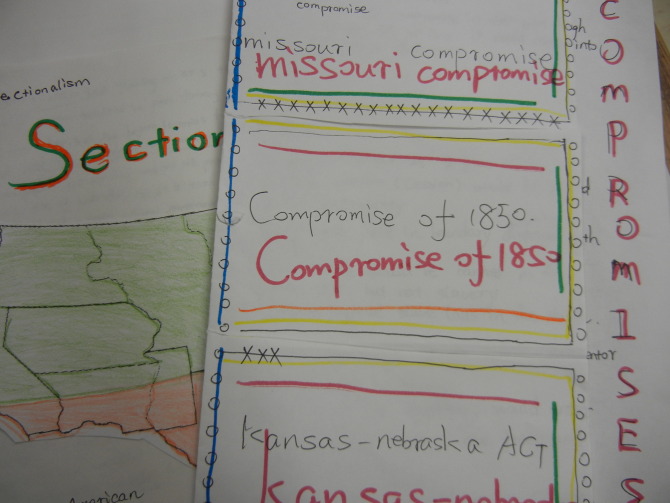 ectionalism
Section
American
compromise
missouri compromise
missouri compromise
xxxxxxxxxxxxxxxxxx
Compromise of 1850.
Compromise of 1850
xxx
Kansas-nebraska ACT
Kansas-nebra
ogh
into
d
th
ator
COMPROMISES